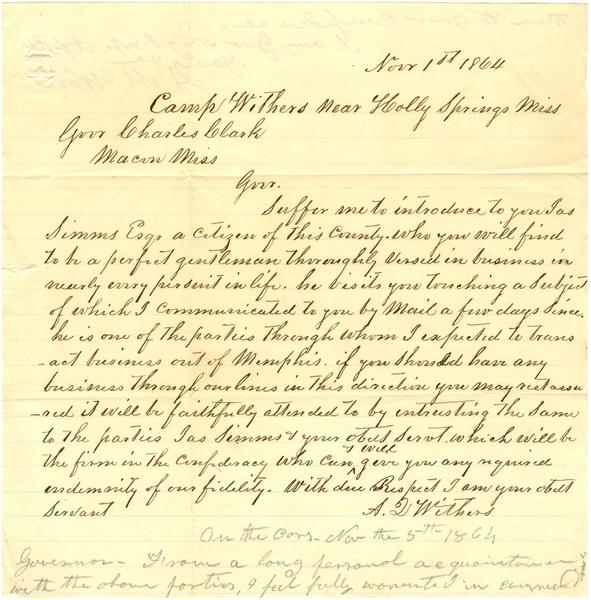 Novr 1st 1864
Camp Withers near Holly Springs Miss
Govr Charles Clark
Macon Miss
Govr.
Suffer me to introduce to you Jas
Simms Esqr a citizen of this County. who you will find
to be a perfect gentleman thoroughly versed in business in
nearly evry persuit in life. he visits you touching a subject
of which I communicated to you by Mail a few days since.
he is one of the parties through whom I expected to trans
-act business out of Memphis. if you should have any
business through our lines in this direction you may rest assu
-red it will be faithfully attended to by entrusting the same
to the parties Jas Simms & your obedt Servt. which will be
the firm in the Confidracy who can & will give you any required
indemnity of our fidelity. With due Respect I am your obedt
Servant A. D Withers
On the Cars - Nov the 5th 1864
Governor - From a long personal acquaintance
with the above parties, I feel fully warrented in